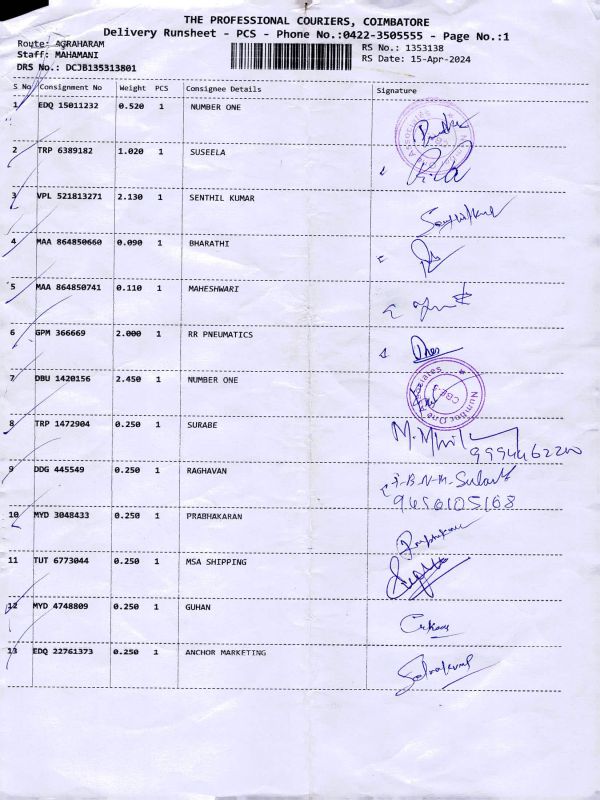 THE PROFESSIONAL COURIERS, COIMBATORE
Delivery Runsheet - PCS - Phone No.:0422-3505555 - Page No.:1
Route: AGRAHARAM
RS No.: 1353138
Staff: MAHAMANI
RS Date: 15-Apr-2024
DRS No.: DCJB135313801
S No Consignment No Weight PCS Consignee Details Signature
1 EDQ 15011232 0.520 1 NUMBER ONE
2 TRP 6389182 1.020 1 SUSEELA
3 VPL 521813271 2.130 1 SENTHIL KUMAR
4 MAA 864850660 0.090 1 BHARATHI
5 MAA 864850741 0.110 1 MAHESHWARI
6 GPM 366669 2.000 1 RR PNEUMATICS
7 DBU 1420156 2.450 1 NUMBER ONE
Number One Associates
8 TRP 1472904 0.250 1 SURABE
9 DDG 445549 0.250 1 RAGHAVAN
10 MYD 3048433 0.250 1 PRABHAKARAN
11 TUT 6773044 0.250 1 MSA SHIPPING
12 MYD 4748809 0.250 1 GUHAN
13 EDQ 22761373 0.250 1 ANCHOR MARKETING